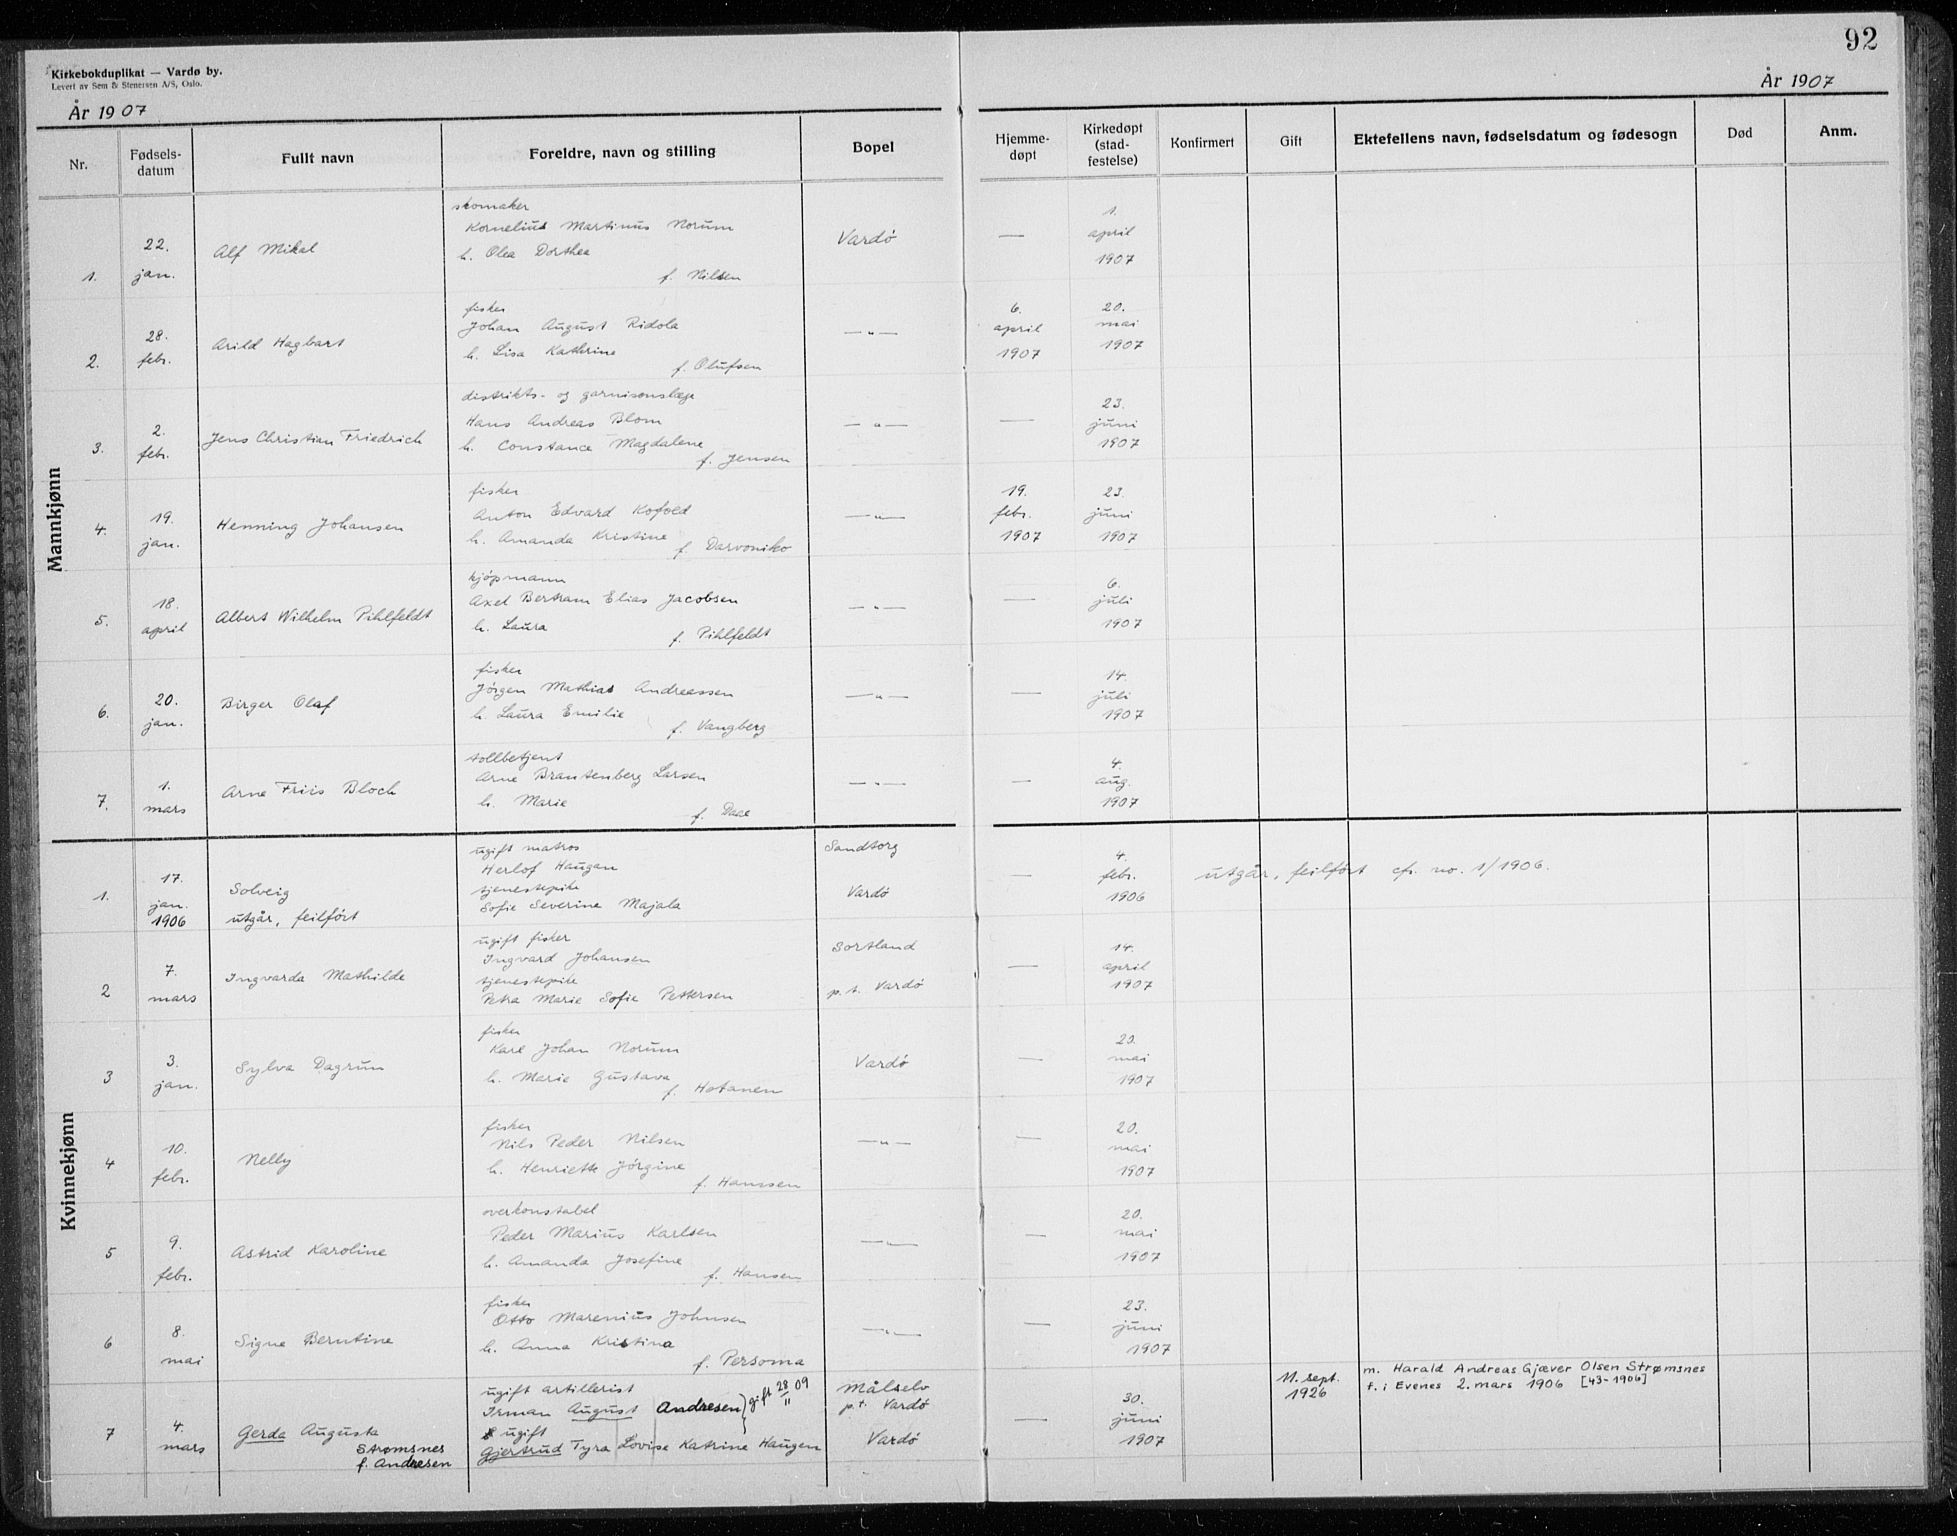 92
Kirkebokduplikat — Vardø by.
Levert av Sem & Stenersen A/S, Oslo.
År 1907
År 1907
Nr. Fødselsdatum Fullt navn Foreldre, navn og stilling Bopel Hjemmedøpt Kirkedøpt (stadfestelse) Konfirmert Gift Ektefellens navn, fødselsdatum og fødesogn Død Anm.
Mannkjønn
skomaker
Kornelius Martinus Norum
1. 22. jan. Alf Mikal h. Olea Dorthea Vardö — 1. april 1907
f. Nilsen
fisker
Johan August Ridola
2. 28. febr. Arild Hagbart h. Lisa Kathrine —„— 6. april 1907 20. mai 1907
f. Olufsen
distrikts- og garnisonslæge
Hans Andreas Blom
3. 2. febr. Jens Christian Friedrich h. Constance Magdalene —„— — 23. juni 1907
f. Jensen
fisker
Anton Edvard Kofoed
4. 19. jan. Henning Johansen h. Amanda Kristine —„— 19. febr. 1907 23. juni 1907
f. Darvoniko
kjöpmann
Axel Bertram Elias Jacobsen
5. 18. april Albert Wilhelm Pihlfeldt h. Laura —„— — 6. juli 1907
f. Pihlfeldt
fisker
Jörgen Mathias Andreassen
6. 20. jan. Birger Olaf h. Laura Emilie —„— — 14. juli 1907
f. Vangberg
tollbetjent
Arne Brantenberg Larsen
7. 1. mars Arne Friis Bloch h. Marie —„— — 4. aug. 1907
f. Daae
Kvinnekjønn
ugift matros Sandtorg
Herlof Haugan
1. 17. jan. 1906 Solveig tjenestepike Vardö — 4. febr. 1906 utgår, feilfört cfr. no. 1/1906.
utgår, feilfört Sofie Severine Majala
ugift fisker Sortland
Ingvard Johansen
2 7. mars Ingvarda Mathilde tjenestepike p.t. Vardö — 14. april 1907
Petra Marie Sofie Pettersen
fisker
Karl Johan Norum
3 3. jan. Sylva Dagrun h. Marie Gustava Vardö — 20. mai 1907
f. Hotanen
fisker
Nils Peder Nilsen
4 10. febr. Nelly h. Henriette Jörgine —„— — 20. mai 1907
f. Hanssen
overkonstabel
Peder Marius Karlsen
5 9. febr. Astrid Karoline h. Amanda Josefine —„— — 20. mai 1907
f. Hansen
fisker
Otto Marenius Johnsen
6 8. mai Signe Berntine h. Anna Kristina —„— — 23. juni 1907
f. Persoma
ugift artillerist Målselv 11. sept. 1926 m. Harald Andreas Gjæver Olsen Strømsnes
Irman August Andresen } gift 28/11 09 p.t. Vardö f. i Evenes 2. mars 1906 [43-1906]
7 4. mars Gerda Augusta ugift — 30. juni 1907
Strømsnes Gjertrud Tyra Lovise Katrine Haugen Vardö
f. Andresen